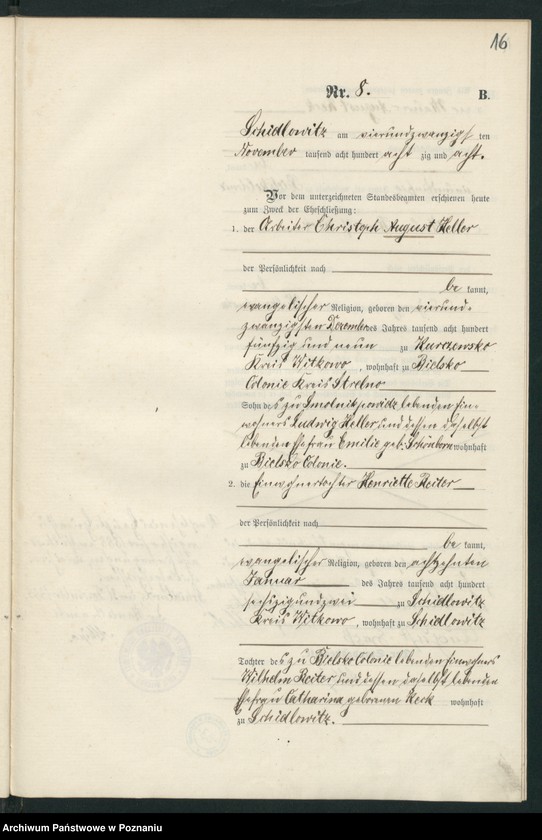 16
Nr. 8. B.
Schidlowitz am vierundzwanzigs ten
November tausend acht hundert acht zig und acht.
Vor dem unterzeichneten Standesbeamten erschienen heute
zum Zweck der Eheschließung:
1. der Arbeiter Christoph August Heller
der Persönlichkeit nach
be kannt,
evangelischer Religion, geboren den vierund-
zwanzigsten Dezember des Jahres tausend acht hundert
fünfzig und neun zu Kurczewsko
Kreis Witkowo, wohnhaft zu Bielsko
Colonie Kreis Strelno
Sohn des zu lebenden Ein-
wohners Ludwig Heller und dessen daselbst
lebenden Ehefrau Emilie geb. wohnhaft
zu Bielsko Colonie.
2. die Einwohnertochter Henriette Reiter
der Persönlichkeit nach
be kannt,
evangelischer Religion, geboren den achtzehnten
Januar des Jahres tausend acht hundert
sechszigundzwei zu Schidlowitz
Kreis Witkowo, wohnhaft zu Schidlowitz
Tochter des zu Bielsko Colonie lebenden Einwohners
Wilhelm Reiter und dessen daselbst lebenden
Ehefrau Catharina geborenen Heck wohnhaft
zu Schidlowitz.
Archiwum Państwowe w Poznaniu
szukajwarchiwach.gov.pl